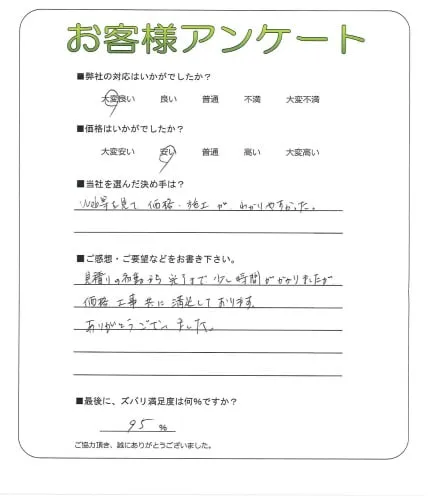 お客様アンケート
■弊社の対応はいかがでしたか？
大変良い 良い 普通 不満 大変不満
■価格はいかがでしたか？
大変安い 安い 普通 高い 大変高い
■当社を選んだ決め手は？
Web等を見て 価格、施工が、わかりやすかった。
■ご感想・ご要望などをお書き下さい。
見積りの 完了まで 少し時間がかかりましたが
価格 工事 共に 満足しております。
ありがとうございました。
■最後に、ズバリ満足度は何%ですか？
95 %
ご協力頂き、誠にありがとうございました。